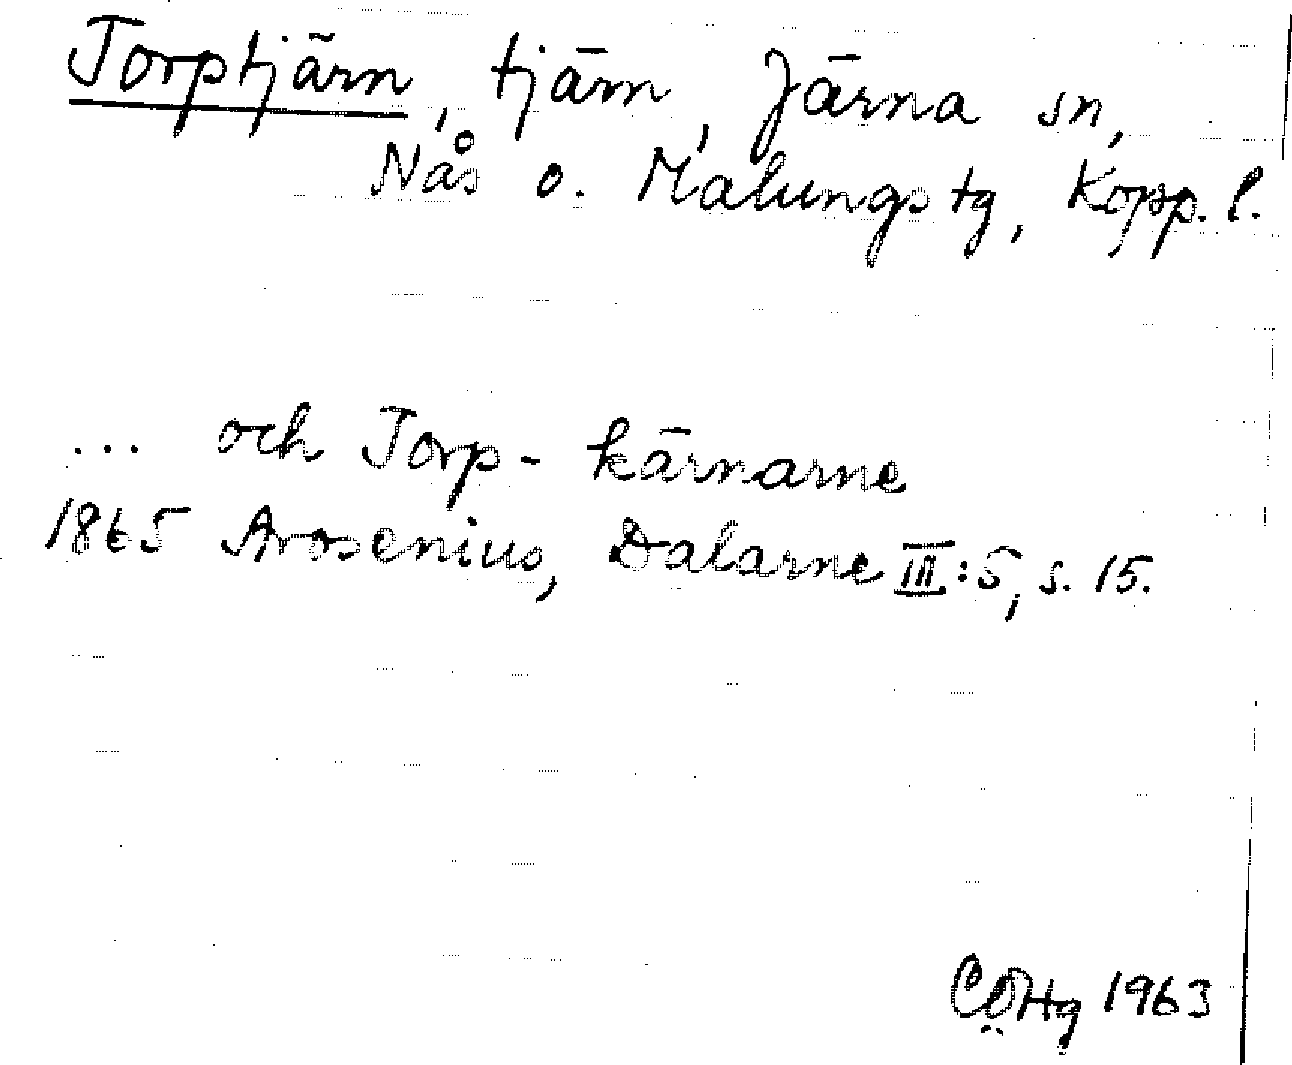 Torptjärn, tjärn, Järna sn,
Nås o. Malungs tg, Kopp. l.
... och Torp-kärnarne
1865 Arosenius, Dalarne III:5, s. 15.
CÖHg 1963